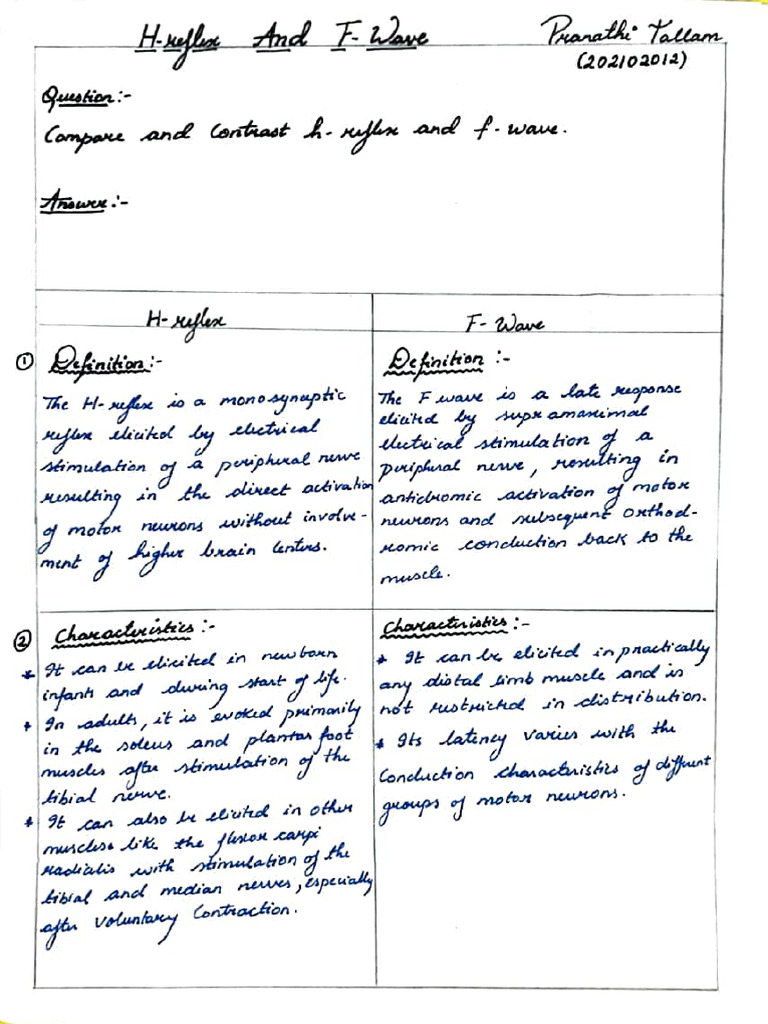 H-reflex And F-Wave
Pranathi Tallam
(202102012)
Question:-
Compare and contrast h-reflex and f-wave.
Answer:-
H-reflex
① Definition:-
The H-reflex is a monosynaptic
reflex elicited by electrical
stimulation of a peripheral nerve
resulting in the direct activation
of motor neurons without involve-
ment of higher brain centers.
F-Wave
Definition:-
The F wave is a late response
elicited by supramaximal
electrical stimulation of a
peripheral nerve, resulting in
antidromic activation of motor
neurons and subsequent orthod-
romic conduction back to the
muscle.
② Characteristics:-
* It can be elicited in newborn
infants and during start of life.
* In adults, it is evoked primarily
in the soleus and plantar foot
muscles after stimulation of the
tibial nerve.
* It can also be elicited in other
muscles like the flexor carpi
radialis with stimulation of the
tibial and median nerves, especially
after voluntary contraction.
Characteristics:-
* It can be elicited in practically
any distal limb muscle and is
not restricted in distribution.
* Its latency varies with the
conduction characteristics of different
groups of motor neurons.